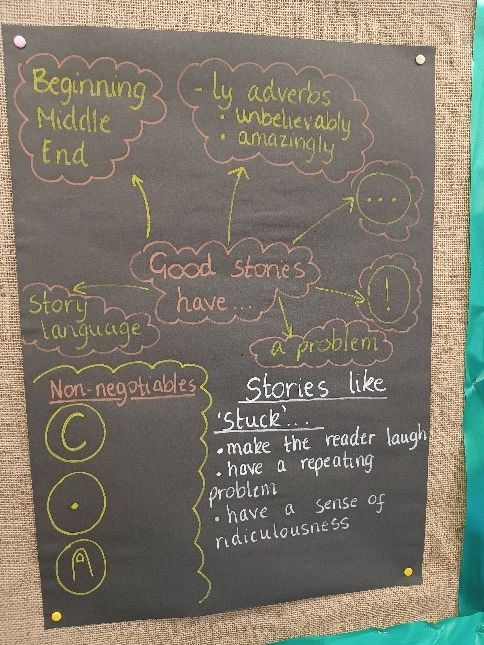 Beginning
Middle
End
- ly adverbs
• unbelievably
• amazingly
...
Good stories
have...
!
Story
language
a problem
Non-negotiables
C
.
A
Stories like
'Stuck'...
• make the reader laugh
• have a repeating
problem
• have a sense of
ridiculousness